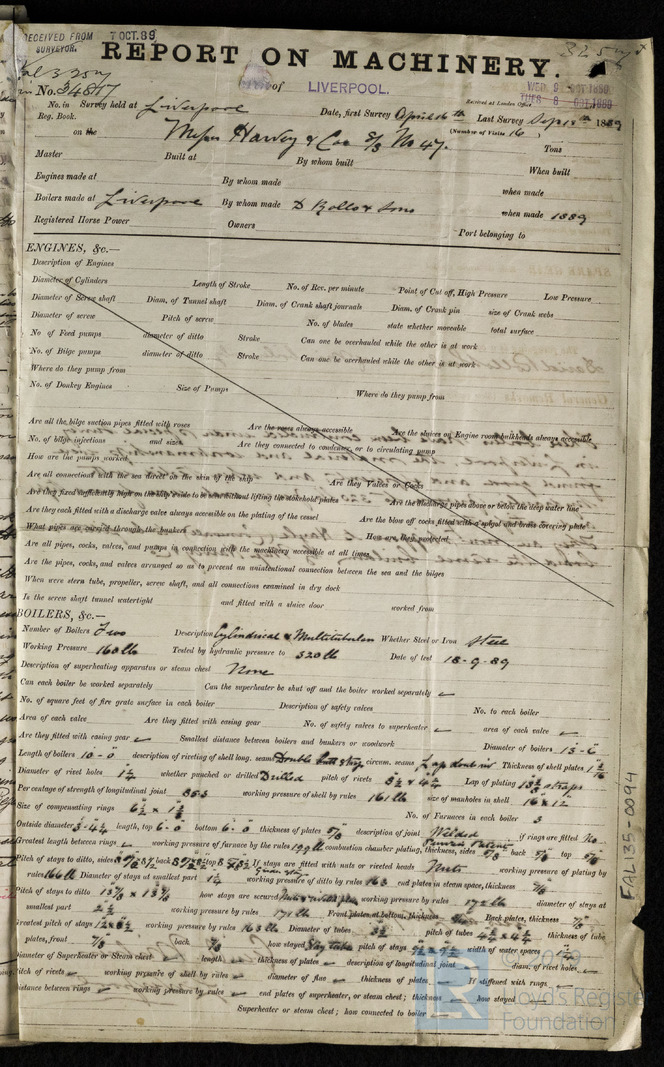 RECEIVED FROM 7 OCT. 89
SURVEYOR.
REPORT ON MACHINERY.
No. 34817
of LIVERPOOL.
Received at London Office
WED. 9 OCT 1889
TUES. 8 OCT. 1889
No. in Survey held at Liverpool Date, first Survey April 16th Last Survey Sep 18th 1889
Reg. Book. (Number of Visits 16)
on the Messrs Harvey & Co S/S No 47. Tons
Master Built at By whom built When built
Engines made at By whom made when made
Boilers made at Liverpool By whom made D Rollo & Sons when made 1889
Registered Horse Power Owners Port belonging to
ENGINES, &c.—
Description of Engines
Diameter of Cylinders Length of Stroke No. of Rev. per minute Point of Cut off, High Pressure Low Pressure
Diameter of Screw shaft Diam. of Tunnel shaft Diam. of Crank shaft journals Diam. of Crank pin size of Crank webs
Diameter of screw Pitch of screw No. of blades state whether moveable total surface
No of Feed pumps diameter of ditto Stroke Can one be overhauled while the other is at work
No. of Bilge pumps diameter of ditto Stroke Can one be overhauled while the other is at work
Where do they pump from
No. of Donkey Engines Size of Pumps Where do they pump from
Are all the bilge suction pipes fitted with roses Are the roses always accessible Are the sluices on Engine room bulkheads always accessible
No. of bilge injections and sizes Are they connected to condenser, or to circulating pump
How are the pumps worked
Are all connections with the sea direct on the skin of the ship Are they Valves or Cocks
Are they fixed sufficiently high on the ship's side to be seen without lifting the stokehold plates Are the discharge pipes above or below the deep water line
Are they each fitted with a discharge valve always accessible on the plating of the vessel Are the blow off cocks fitted with a spigot and brass covering plate
What pipes are carried through the bunkers How are they protected
Are all pipes, cocks, valves, and pumps in connection with the machinery accessible at all times
Are the pipes, cocks, and valves arranged so as to prevent an unintentional connection between the sea and the bilges
When were stern tube, propeller, screw shaft, and all connections examined in dry dock
Is the screw shaft tunnel watertight and fitted with a sluice door worked from
BOILERS, &c.—
Number of Boilers Two Description Cylindrical & Multitubular Whether Steel or Iron Steel
Working Pressure 160 lb Tested by hydraulic pressure to 320 lb Date of test 18-9-89
Description of superheating apparatus or steam chest None
Can each boiler be worked separately Can the superheater be shut off and the boiler worked separately
No. of square feet of fire grate surface in each boiler Description of safety valves No. to each boiler
Area of each valve Are they fitted with easing gear No. of safety valves to superheater area of each valve
Are they fitted with easing gear Smallest distance between boilers and bunkers or woodwork Diameter of boilers 13-6
Length of boilers 10-0 description of riveting of shell long. seams Double butt strap circum. seams Lap double riv Thickness of shell plates 1 1/16
Diameter of rivet holes 1 1/4 whether punched or drilled Drilled pitch of rivets Lap of plating straps
Per centage of strength of longitudinal joint 85.3 working pressure of shell by rules 161 lb size of manholes in shell 16 x 12
Size of compensating rings No. of Furnaces in each boiler 3
Outside diameter 3-4 3/4 length, top 6-0 bottom 6-0 thickness of plates 5/8 description of joint Welded if rings are fitted No
Greatest length between rings working pressure of furnace by the rules combustion chamber plating, thickness, sides 5/8 back 5/8 top 5/8
Pitch of stays to ditto, sides back top If stays are fitted with nuts or riveted heads Nuts working pressure of plating by
rules 166 lb Diameter of stays at smallest part working pressure of ditto by rules 163 end plates in steam space, thickness
Pitch of stays to ditto how stays are secured working pressure by rules 172 lb diameter of stays at
smallest part working pressure by rules 171 lb Front plates at bottom, thickness Back plates, thickness 7/8
Greatest pitch of stays working pressure by rules 163 lb Diameter of tubes pitch of tubes thickness of tube
plates, front 7/8 back how stayed Stay tubes pitch of stays width of water spaces
Diameter of Superheater or Steam chest length thickness of plates description of longitudinal joint diam. of rivet holes
Pitch of rivets working pressure of shell by rules diameter of flue thickness of plates If stiffened with rings
Distance between rings working pressure by rules end plates of superheater, or steam chest; thickness how stayed
Superheater or steam chest; how connected to boiler
FAL135-0094
Lloyd's Register
Foundation